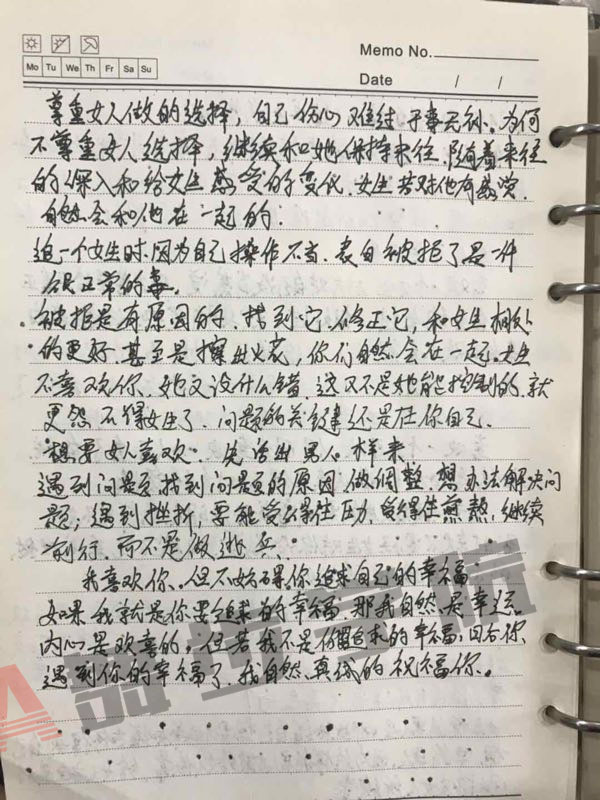 Memo No.
Mo Tu We Th Fr Sa Su
Date / /
尊重女人做的选择，自己伤心难过于事无补、为何
不尊重女人选择，继续和她保持来往.随着来往
的深入和给女生感受的变化.女生若对他有感觉.
自然会和他在一起的.
追一个女生时.因为自己操作不当、表白被拒了是一件
很正常的事。
被拒是有原因的.找到它.修正它，和女生相处
的更好.甚至是擦出火花，你们自然会在一起.女生
不喜欢你、她又没什么错.这又不是她能控制的.就
更怨不得女生了、问题的关键还是在你自己.
想要女人喜欢.先活出男人样来.
遇到问题.找到问题的原因.做调整.想办法解决问
题；遇到挫折，要能受得住压力、受得住煎熬.继续
前行.而不是做逃兵、
我喜欢你。但不妨碍你追求自己的幸福.
如果我就是你要追求的幸福.那我自然是幸运.
内心是欢喜的，但若我不是你追求的幸福，
遇到你的幸福了.我自然真诚的祝福你。